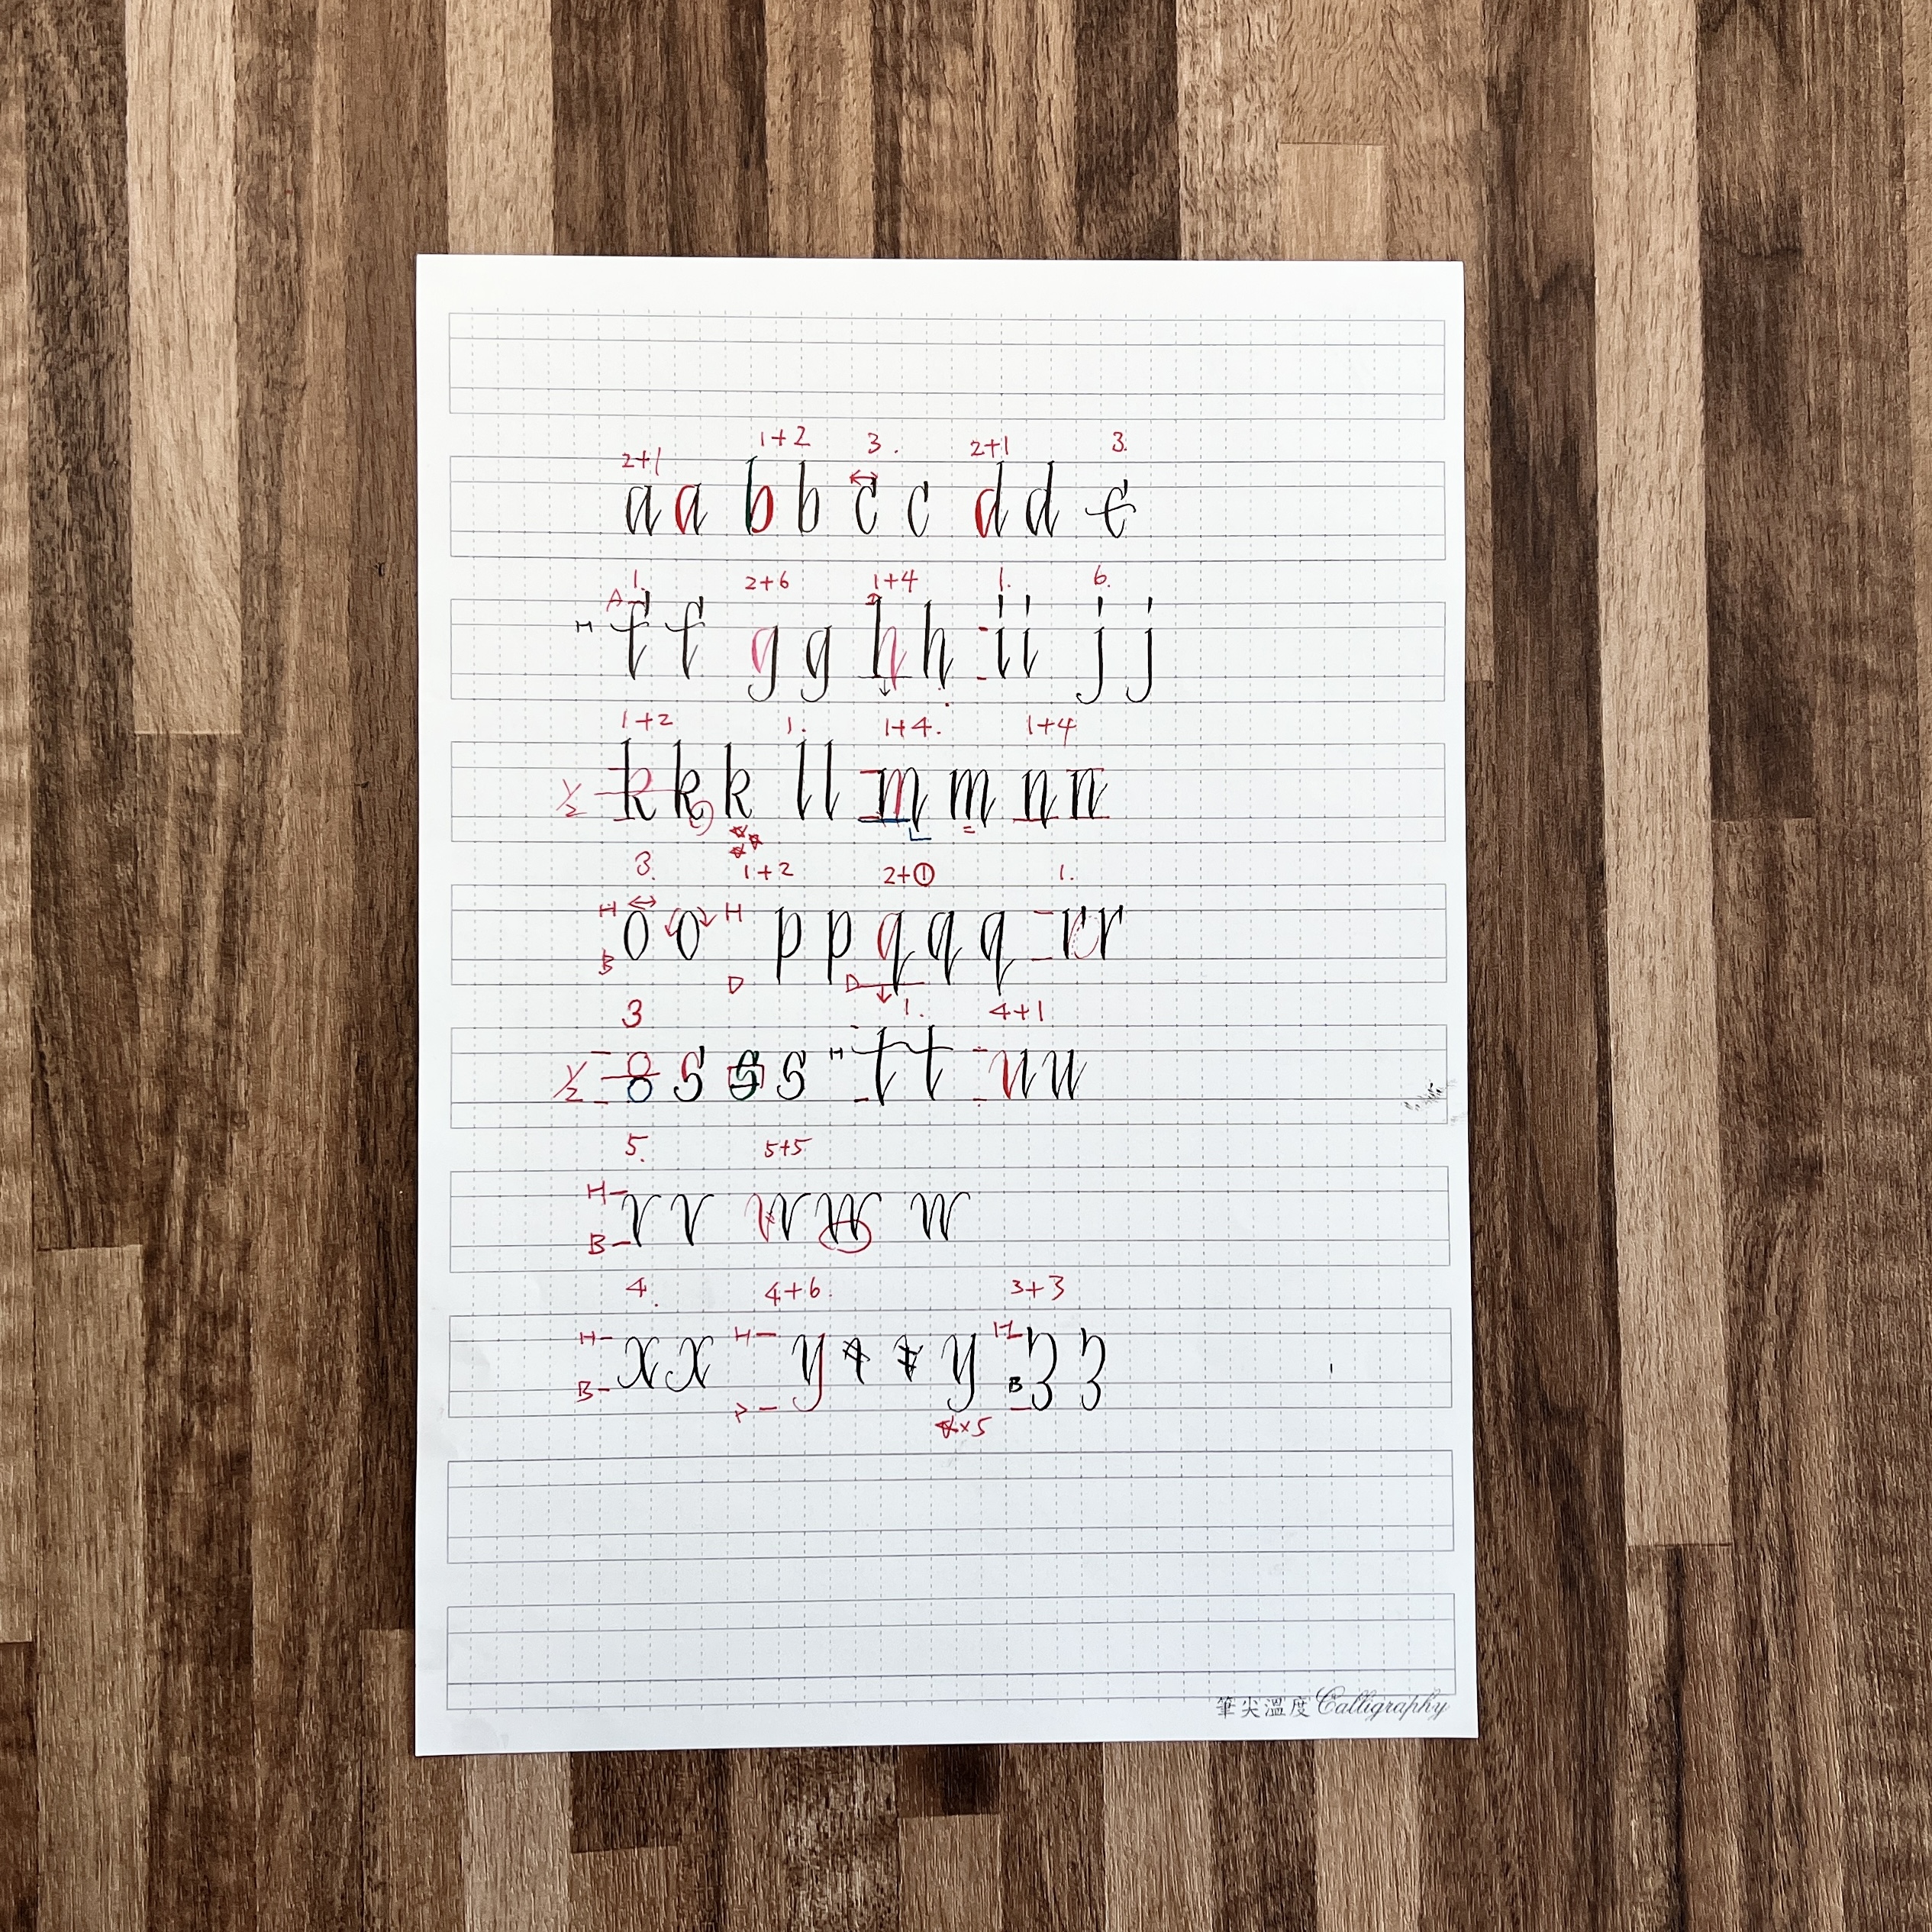 2+1 1+2 3. 2+1 3.
a a b b c c d d e
1. 2+6 1+4 1. 6.
A
H f f g g h h i i j j
1+2 1. 1+4. 1+4
1/2 k k k l l m m n n
3. 1+2 2+① 1.
H o o H p p q q q r r
B D D
3 1. 4+1
1/2 8 s s s H t t u u
5. 5+5
H v v w w w
B
4. 4+6. 3+3
H x x H y y H z z
B B
×5
筆尖溫度 Calligraphy